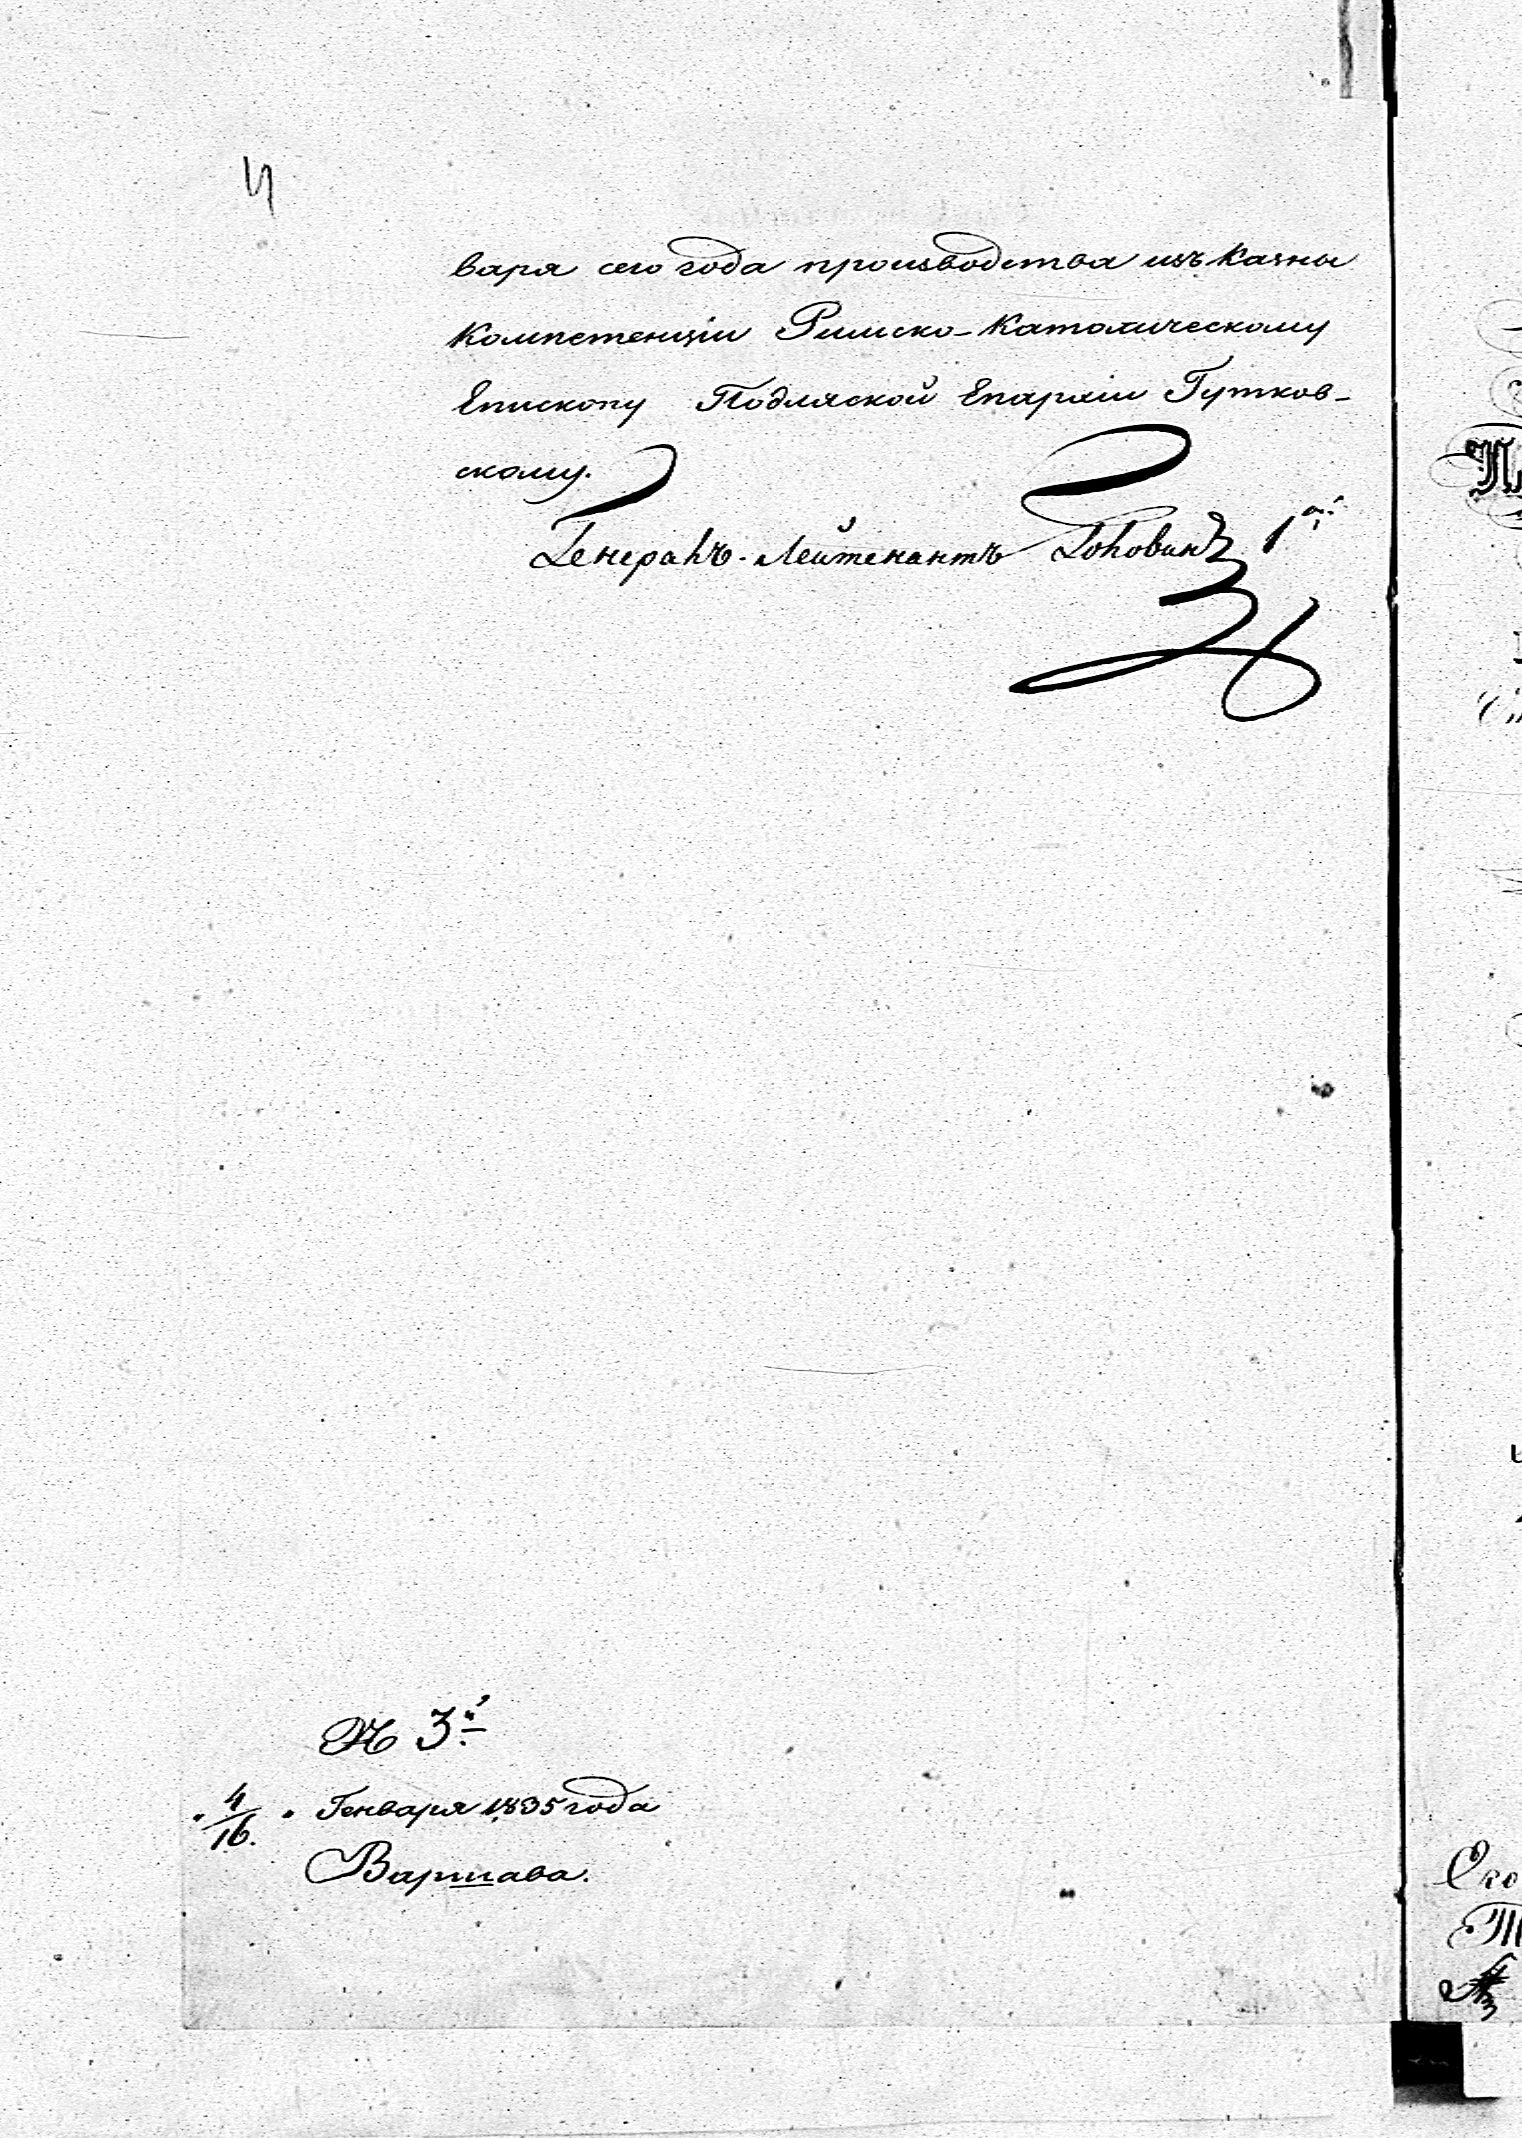 варя сего года производства изъ казны
Компетенціи Римско-Католическому
Епископу Подляской Епархіи Гутков-
скому.
Генералъ-Лейтенантъ Головинъ 1й
№ 3й
" 4/16. " Генваря 1835 года
Варшава.